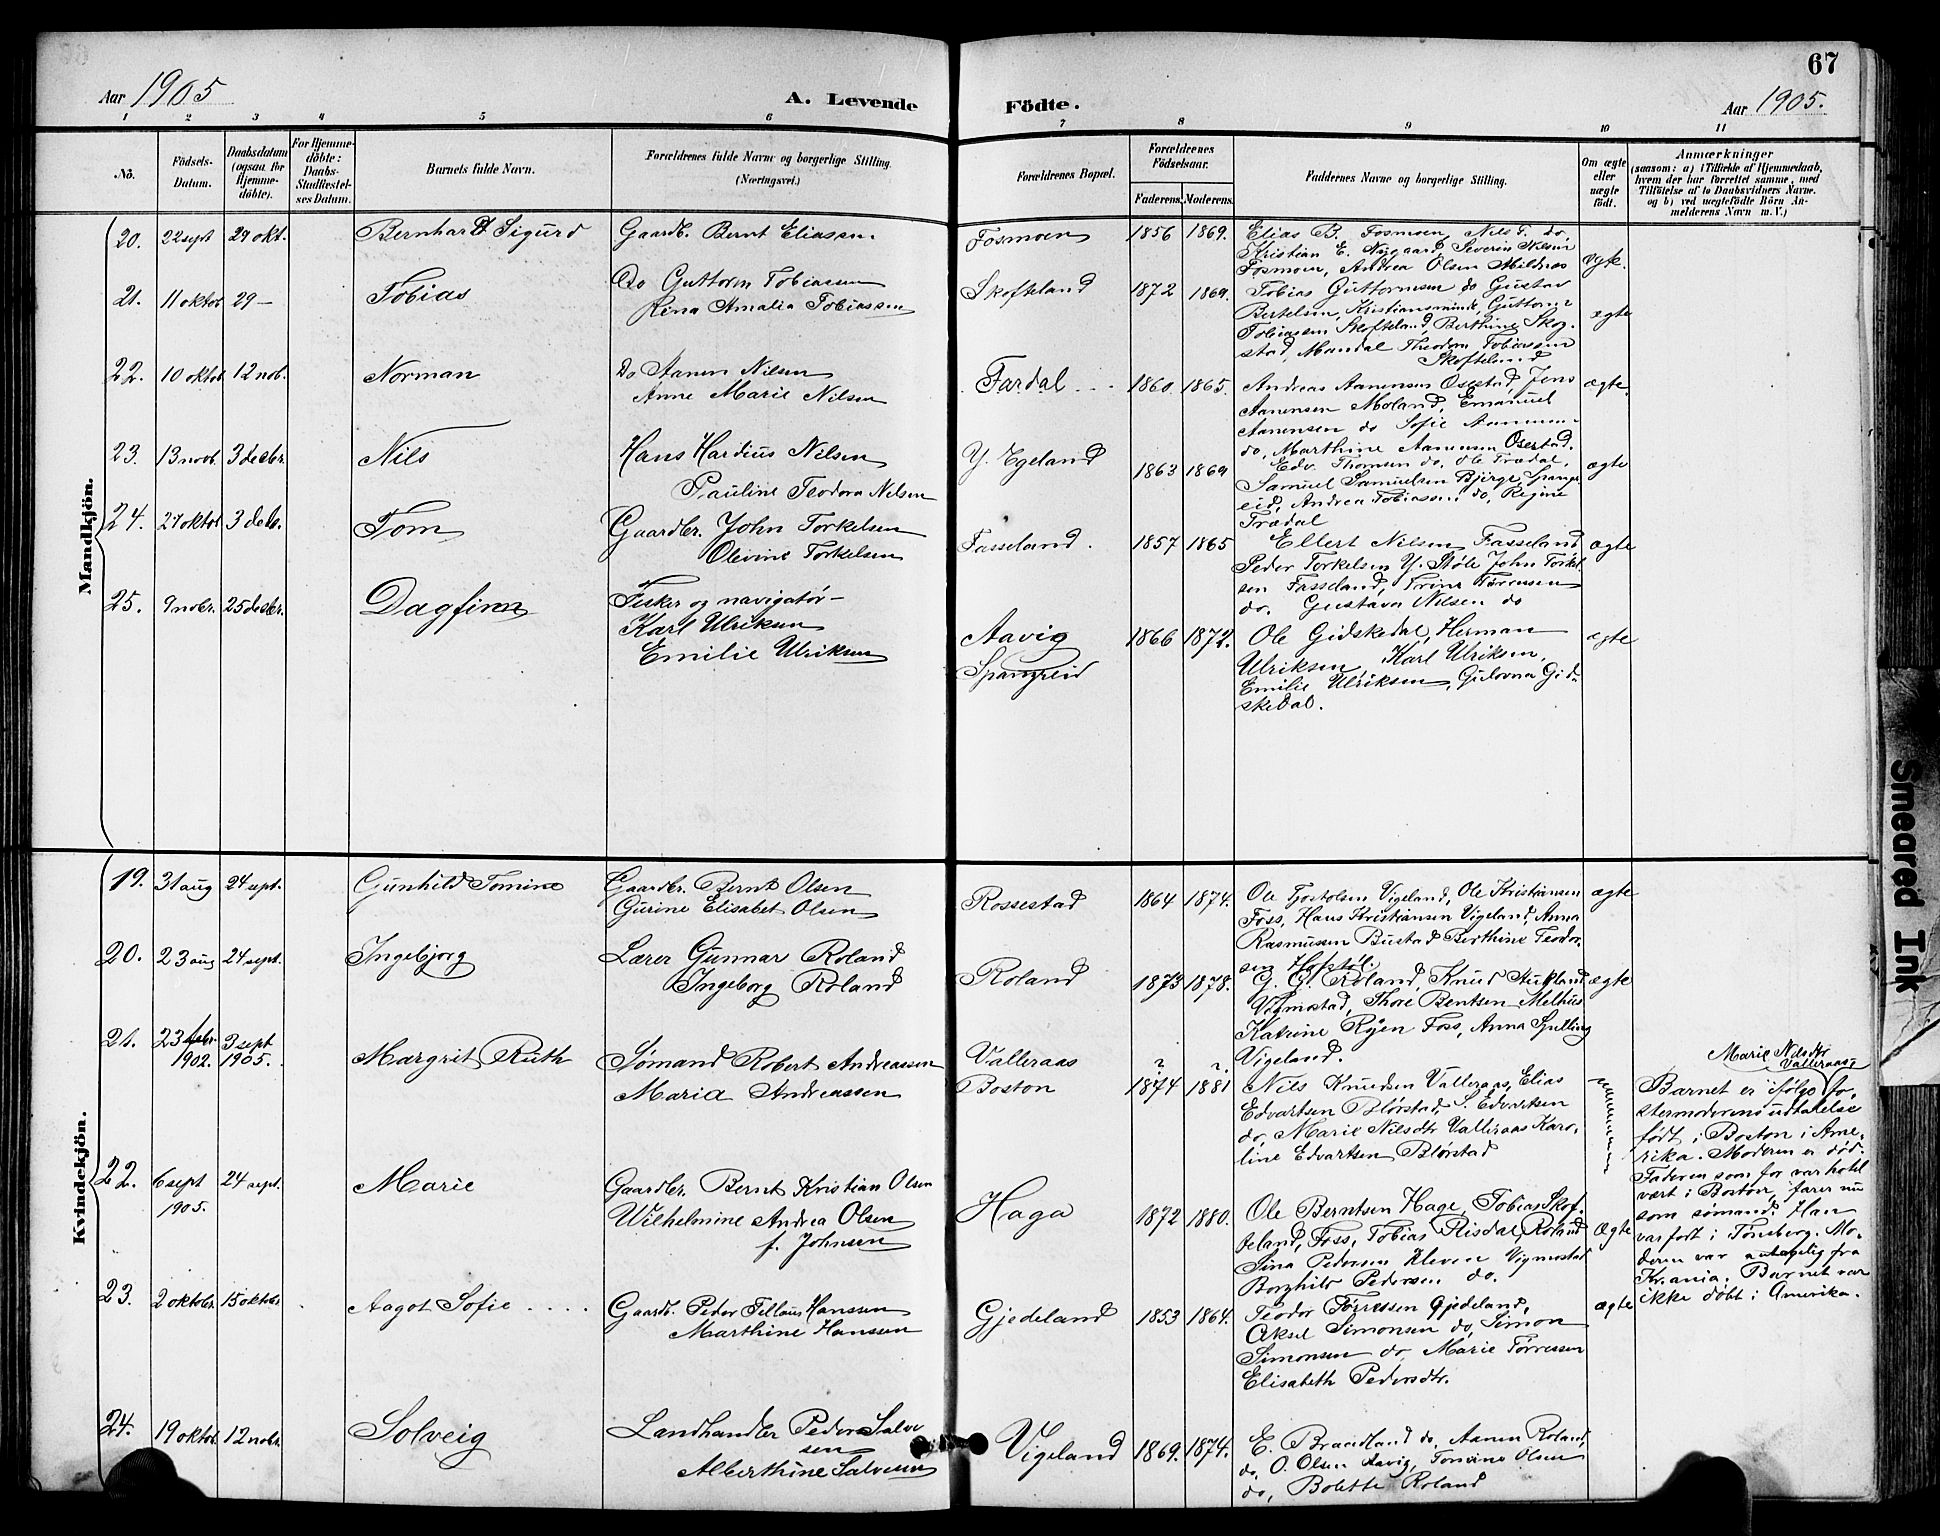 67
Aar 1905
A. Levende
Födte.
Aar 1905.
1 2 3 4 5 6 7 8 9 10 11
No.
Födsels-
Datum.
Daabsdatum
(ogsaa for
Hjemme-
döbte).
For Hjemme-
döbte:
Daabs-
Stadfæstel-
ses Datum.
Barnets fulde Navn.
Forældrenes fulde Navne og borgerlige Stilling.
(Næringsvei.)
Forældrenes Bopæl.
Forældrenes
Födselsaar.
Faderens. Moderens.
Faddernes Navne og borgerlige Stilling.
Om ægte
eller
uægte
födt.
Anmærkninger
(saasom: a) i Tilfælde af Hjemmedaab,
hvem der har forrettet samme, med
Tilföielse af to Daabsvidners Navne.
og b) ved uægtefödte Börn An-
melderens Navn m. V.)
Mandkjön.
20. 22 sept 29 okt. Bernhard Sigurd Gaardb. Bernt Eliassen. Fosmoen 1856 1869.
Elias B. Fosmoen, Nils F. do.
Kristian E. Nygaard, Severin Nilsen
Fosmoen, Andrea Olsen Mildnes
ægte.
21. 11 oktob 29 — Tobias Do Guttorm Tobiassen
Rena Amalia Tobiassen
Skofteland 1872 1869.
Tobias Guttormsen do Gustav
Bertelsen, Kristiansminde, Guttorm
Tobiassen Skofteland, Berthine Skog-
stad, Mandal Theodora Tobiassen
Skofteland
ægte
22. 10 oktob 12 nob. Norman Do Aanen Nilsen
Anne Marie Nilsen
Fardal 1860. 1865.
Andreas Aanensen Osestad, Jens
Aanensen Moland, Emanuel
Aanensen do Sofie Aanensen
do, Marthine Aanensen Osestad.
ægte.
23. 13 novb. 3 decbr. Nils Hans Hardius Nilsen
Pauline Teodora Nilsen
Y. Egeland 1863 1869
Edv. Thomsen do, Ole Trædal,
Samuel Samuelsen Bjerge, Spange
eid, Andrea Tobiassen do, Regine
Trædal
ægte
24. 27 oktob 3 decb. Tom Gaardbr. John Torkelsen
Olivine Torkelsen
Fasseland. 1857 1865
Ellert Nilsen Fasseland
Peder Torkelsen Y. Støle John Torkel
sen Fasseland, Trine Tørensen
do. Gustava Nilsen do
ægte
25. 9 nobr. 25 decbr. Dagfinn Fisker og navigatør –
Karl Ulriksen
Emilie Ulriksen
Aavig
Spangreid
1866 1872.
Ole Gidskedal, Herman
Ulriksen, Karl Ulriksen,
Emilie Ulriksen, Gulovna Gid-
skedal.
ægte
Kvindekjön.
19. 31 aug 24 sept. Gunhild Tomine Gaardbr. Bernt Olsen
Gurine Elisabet Olsen
Rossestad 1864 1874.
Ole Gostolsen Vigeland, Ole Kristiansen
Foss, Hans Kristiansen Vigeland, Anna
Rasmussen Bustad Berthine Teodor-
sen Hofstøl.
ægte
20. 23 aug 24 sept. Ingebjorg Lærer Gunnar Roland
Ingeborg Roland
Roland 1873 1878.
G. G. Roland, Knud Stukland
Vigmostad, Thore Bentsen Melhus
Katrine Røjen Foss, Anna Spilling
Vigeland.
ægte
21. 23 febr 1902. 3 sept 1905. Margrit Ruth Sømand Robert Andreassen
Maria Andreassen
Valleraas
Boston
? ?
1874 1881
Nils Knudsen Valleraas, Elias
Edvartsen Blørstad, S. Edvartsen
do, Marie Nilsdtr Valleraas Karo-
line Edvartsen Blørstad
Marie Nilsdtr
Valleraas,
Barnet er ifølge fo-
stermoderens udtalelse
født i Boston i Ame-
rika. Moderen er død.
Faderen som før var hotel
vært i Boston, farer nu
som sømand. Han
var født i Tønsberg. Mo-
deren var antagelig fra
Kr.ania. Barnet var
ikke døbt i Amerika.
22. 6 sept 1905. 24 sept. Marie Gaardbr. Bernt Kristian Olsen
Wilhelmine Andrea Olsen
f. Johnsen
Haga 1872 1880.
Ole Berntsen Hage, Tobias Skof-
teland, Foss, Tobias Risdal, Roland
Sina Pedersen Kleven Vigmostad
Borghild Pedersen do.
Ægte
23. 2 oktobr. 15 oktobr Aagot Sofie Gaardb. Peder Tellaus Hanssen
Marthine Hanssen
Gjedeland 1853 1864.
Teodor Tørressen Gjedeland,
Aksel Simonsen do, Simon
Simonsen do, Marie Tørressen
Elisabeth Pedersdtr.
ægte
24. 19 oktob. 12 nobr. Solveig Landhandler Peder Salve
sen
Alberthine Salvesen
Vigeland 1869. 1874.
E. Brandland do, Aanen Roland,
do, O. Olsen Aavig, Tomine Olsen
do, Bolette Roland
Smeared Ink